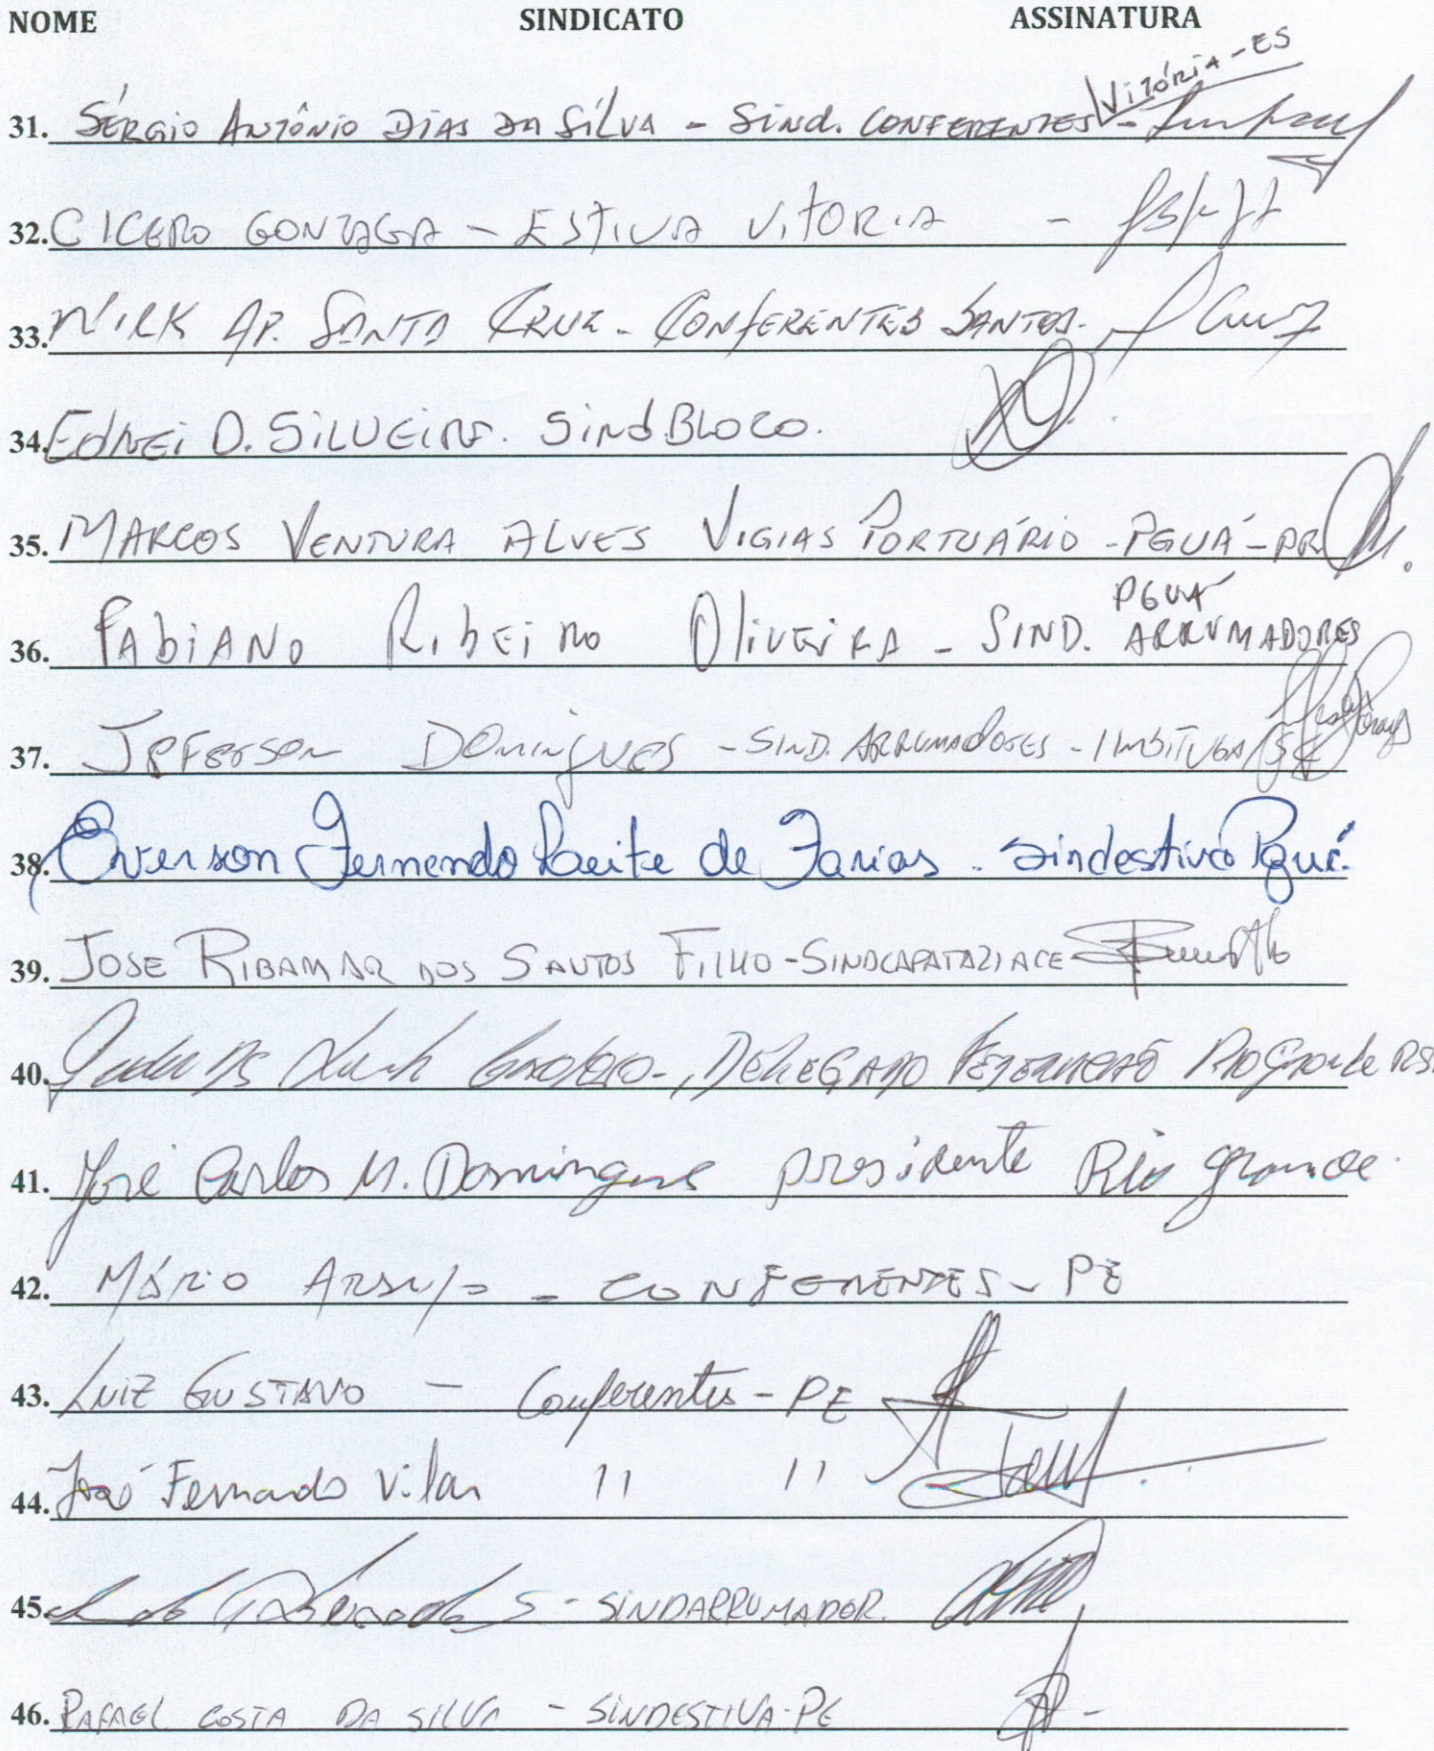 NOME SINDICATO ASSINATURA
Vitória-ES
31. SÉRGIO ANTÔNIO DIAS DA SILVA - SIND. CONFERENTES -
32. CICERO GONZAGA - ESTIVA VITORIA -
33. AP. SANTA CRUZ - CONFERENTES SANTOS.
34. EDNEI D. SILVEIRA. SINDBLOCO.
35. MARCOS VENTURA ALVES VIGIAS PORTUÁRIO - PGUÁ - PR
PGUÁ
36. FABIANO RIBEIRO OLIVEIRA - SIND. ARRUMADORES
37. JEFERSON DOMINGUES - SIND. ARRUMADORES - IMBITUBA
38. Everson Fernando Leite de Farias - Sindestiva Pguá.
39. JOSE RIBAMAR DOS SANTOS FILHO - SINDCAPATAZIACE
40. DELEGADO FEDERAÇÃO RIO Grande RS.
41. José Carlos M. Domingues presidente Rio grande.
42. MÁRIO ARAUJO - CONFERENTES - PE
43. LUIZ GUSTAVO - Conferentes - PE
44. José Fernando Vilar 11 11
45. S - SINDARRUMADOR.
46. RAFAEL COSTA DA SILVA - SINDESTIVA-PE